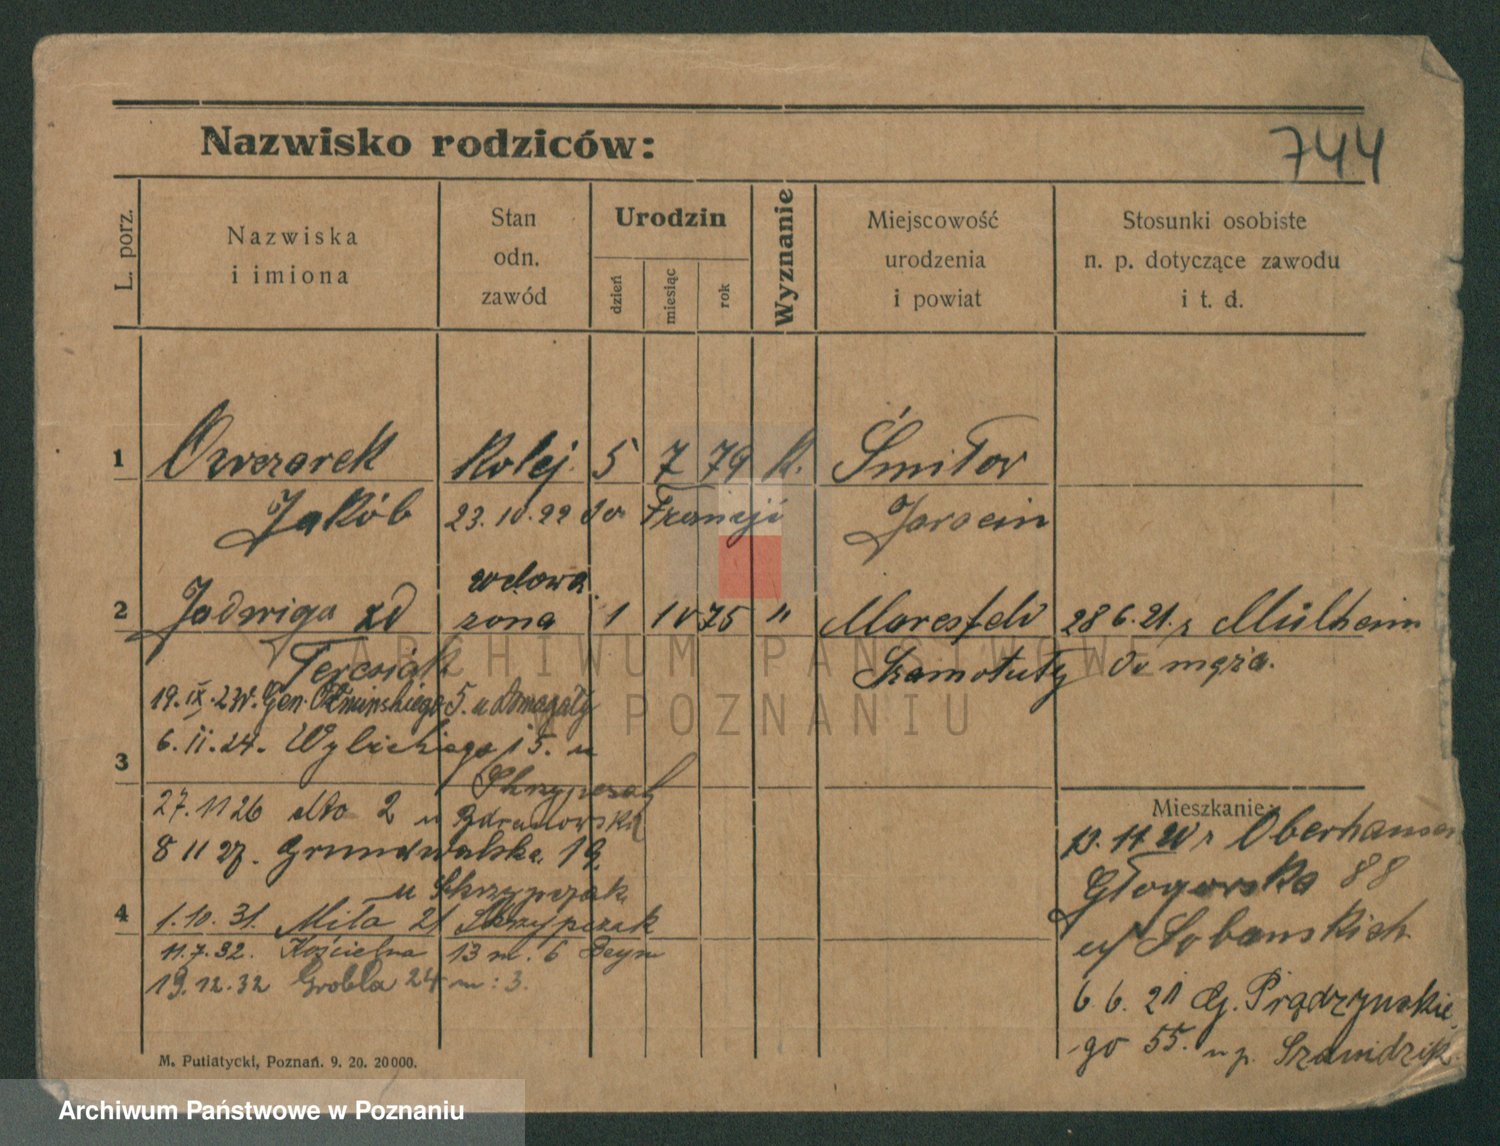 744
Nazwisko rodziców:
L. porz.
Nazwiska
i imiona
Stan
odn.
zawód
Urodzin
dzień
miesiąc
rok
Wyznanie
Miejscowość
urodzenia
i powiat
Stosunki osobiste
n. p. dotyczące zawodu
i t. d.
1 Owczarek Kolej. 5 7 79 K. Śmiłow
Jakób 23.10.22 do Francji Jarocin
wdowa
2 Jadwiga zd żona 1 10 75 " 28 6.21. z Mülheim
Szamotuły do męża.
19.IX.23r. Gen. 5. u Domagały
3 6.II.24. Wybickiego 15. u
Skrzypczak
27.11 26 2 u
8 11 27. Grunwalska 19
u Skrzypczak
4 1.10.31. Miła 21 Skrzypczak
11.7.32. Kościelna 13 m. 6
19.12.32 Grobla 24 m: 3.
Mieszkanie:
z Oberhausen
Głogowska 88
u Sobańskich
6.6.21 Prądzyńskie
go 55.
M. Putiatycki, Poznań. 9. 20. 20000.
ARCHIWUM PAŃSTWOWE
W POZNANIU
Archiwum Państwowe w Poznaniu